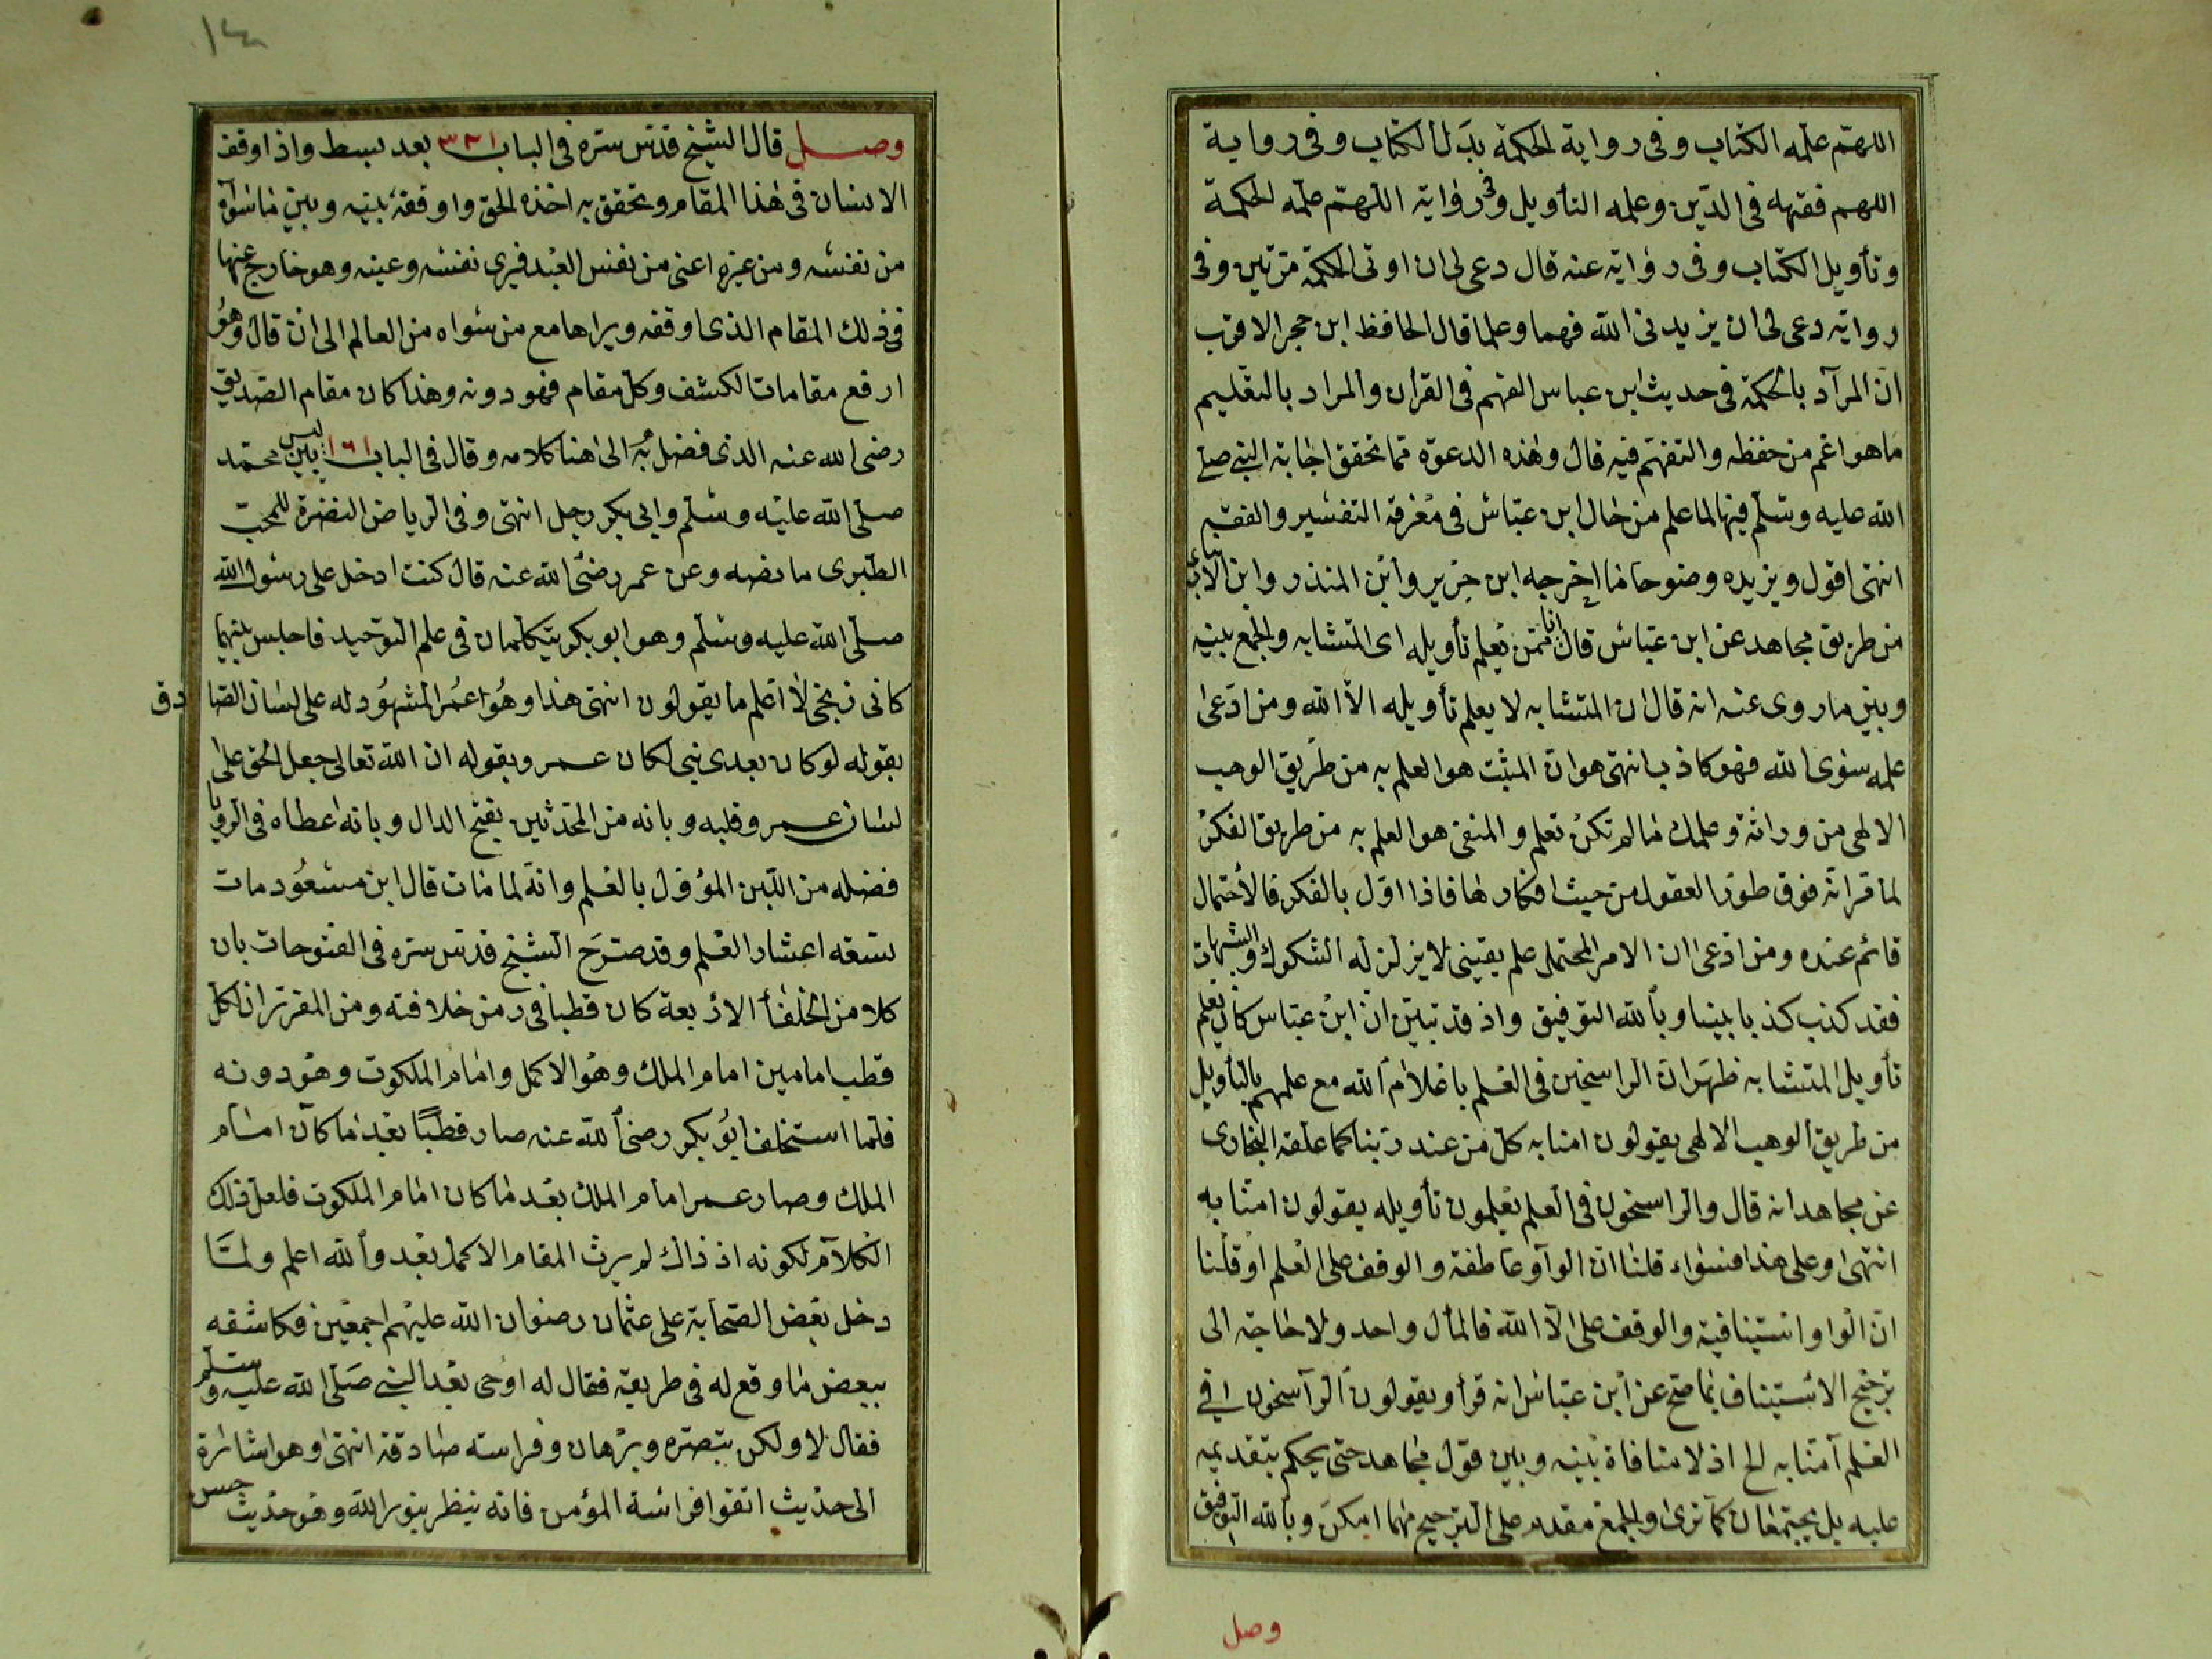 اللهم علمه الكتاب وفى رواية الحكمة بدل الكتاب وفى رواية
اللهم فقهه فى الدين وعلمه التأويل وفى رواية اللهم علمه الحكمة
وتأويل الكتاب وفى رواية عنه قال دعى لى ان اوتى الحكمة مرتين وفى
رواية دعى لى ان يزيدنى الله فهما وعلما قال الحافظ ابن حجر الاقرب
ان المراد بالحكمة فى حديث ابن عباس الفهم فى القرآن والمراد بالتعليم
ما هو اعم من حفظه والتفهم فيه قال وهذه الدعوة مما تحقق اجابة النبى صلى
الله عليه وسلم فيها لما علم من حال ابن عباس فى معرفة التفسير والفقه
انتهى اقول ويزيده وضوحا ما اخرجه ابن جرير وابن المنذر وابن الانبارى
من طريق مجاهد عن ابن عباس قال انا ممن يعلم تأويله اى المتشابه والجمع بينه
وبين ما روى عنه انه قال ان المتشابه لا يعلم تأويله الا الله ومن ادعى
علمه سوى الله فهو كاذب انتهى هو ان المثبت هو العلم به من طريق الوهب
الالهى من وراثة وعلمك ما لم تكن تعلم والمنفى هو العلم به من طريق الفكر
لما قرانه فوق طور العقول من حيث افكارها فاذا اول بالفكر فالاحتمال
قائم عنده ومن ادعى ان الامر المحتمل علم يقينى لا يزلزله الشكوك والشبهات
فقد كذب كذبا بينا وبالله التوفيق واذ قد تبين ان ابن عباس كان يعلم
تأويل المتشابه ظهر ان الراسخين فى العلم باعلام الله مع علمهم بالتأويل
من طريق الوهب الالهى يقولون امنا به كل من عند ربنا كما علقه البخارى
عن مجاهد انه قال والراسخون فى العلم يعلمون تأويله يقولون امنا به
انتهى وعلى هذا فسواء قلنا ان الواو عاطفة والوقف على العلم او قلنا
ان الواو استينافية والوقف على الا الله فالمأل واحد ولا حاجة الى
ترجيح الاستيناف بما صح عن ابن عباس انه قرأ ويقولون الراسخون فى
العلم آمنا به الخ اذ لا منافاة بينه وبين قول مجاهد حتى يحكم بتقديمه
عليه بل يجتمعان كما ترى والجمع مقدم على الترجيح مهما امكن وبالله التوفيق
وصل
١٤
وصل قال الشيخ قدس سره فى الباب ٣٢١ بعد بسط واذا وقف
الانسان فى هذا المقام وتحقق به اخذه الحق واوقفه بينه وبين ما سواه
من نفسه ومن غيره اعنى من نفس العبد فيرى نفسه وعينه وهو خارج عنها
فى ذلك المقام الذى اوقفه ويراها مع من سواه من العالم الى ان قال وهو
ارفع مقامات الكشف وكل مقام فهو دونه وهذا كان مقام الصديق
رضى الله عنه الذى فضل به الى هنا كلامه وقال فى الباب ١٦١ ليس بين محمد
صلى الله عليه وسلم وابى بكر رجل انتهى وفى الرياض النضرة للمحب
الطبرى ما نصه وعن عمر رضى الله عنه قال كنت ادخل على رسول الله
صلى الله عليه وسلم وهو ابو بكر يتكلمان فى علم التوحيد فاجلس بينهما
كانى زنجى لا اعلم ما يقولون انتهى هذا وهو عمر المشهود له على لسان الصادق
بقوله لو كان بعدى نبى لكان عمر وبقوله ان الله تعالى جعل الحق على
لسان عمر وقلبه وبانه من المحدثين بفتح الدال وبانه اعطاه فى الرؤيا
فضله من اللبن المؤول بالعلم وانه لما مات قال ابن مسعود مات
تسعة اعشار العلم وقد صرح الشيخ قدس سره فى الفتوحات بان
كلا من الخلفأ الاربعة كان قطبا فى زمن خلافته ومن المقرر ان لكل
قطب امامين امام الملك وهو الاكمل وامام الملكوت وهو دونه
فلما استخلف ابو بكر رضى الله عنه صار قطبا بعد ما كان امام
الملك وصار عمر امام الملك بعد ما كان امام الملكوت فلعل ذلك
الكلام لكونه اذ ذاك لم يرث المقام الاكمل بعد والله اعلم ولما
دخل بعض الصحابة على عثمان رضوان الله عليهم اجمعين فكاشفه
ببعض ما وقع له فى طريقه فقال له اوحى بعد النبى صلى الله عليه وسلم
فقال لا ولكن تبصره وبرهان وفراسة صادقة انتهى وهو اشارة
الى حديث اتقوا فراسة المؤمن فانه ينظر بنور الله وهو حديث حسن